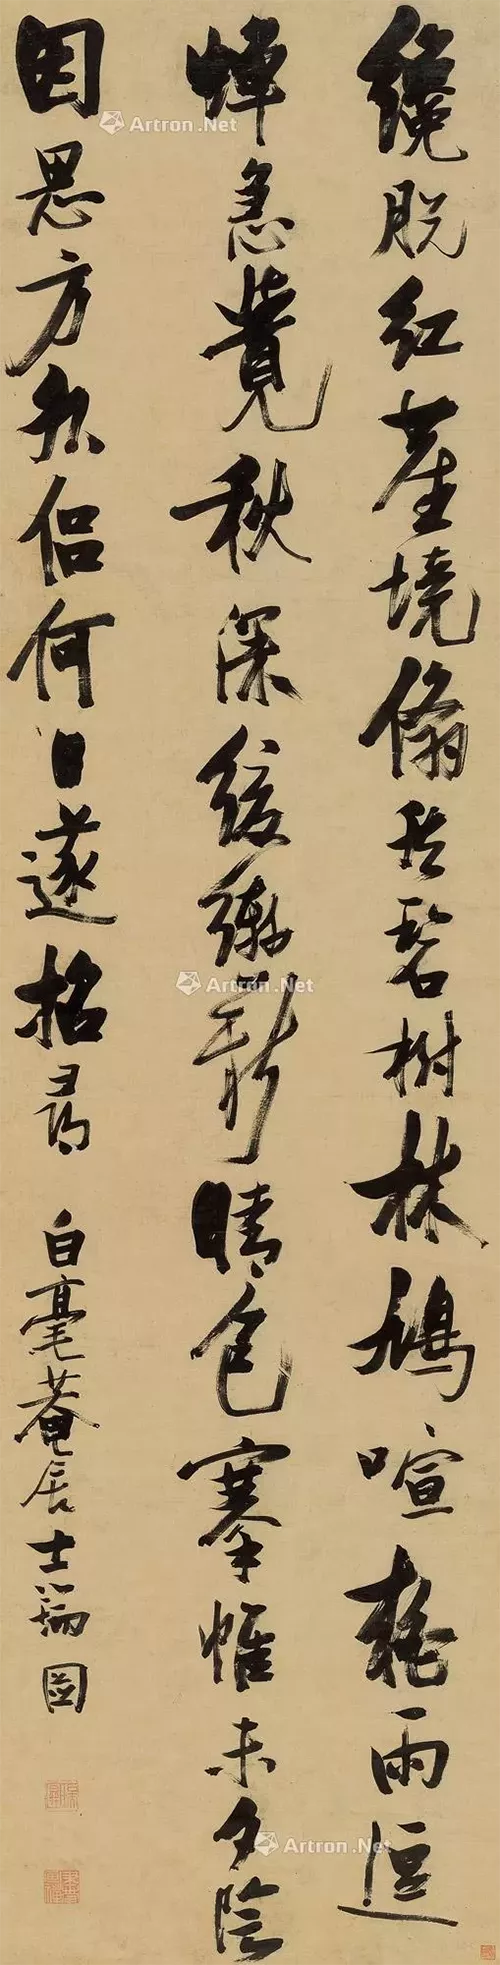 纔脱紅塵境翛然碧樹林鳩喧雨逗
蟬急覺秋深緩轡新晴色搴帷未夕陰
因思方外侶何日遂招尋 白毫菴居士瑞圖
Artron.Net
Artron.Net
Artron.Net